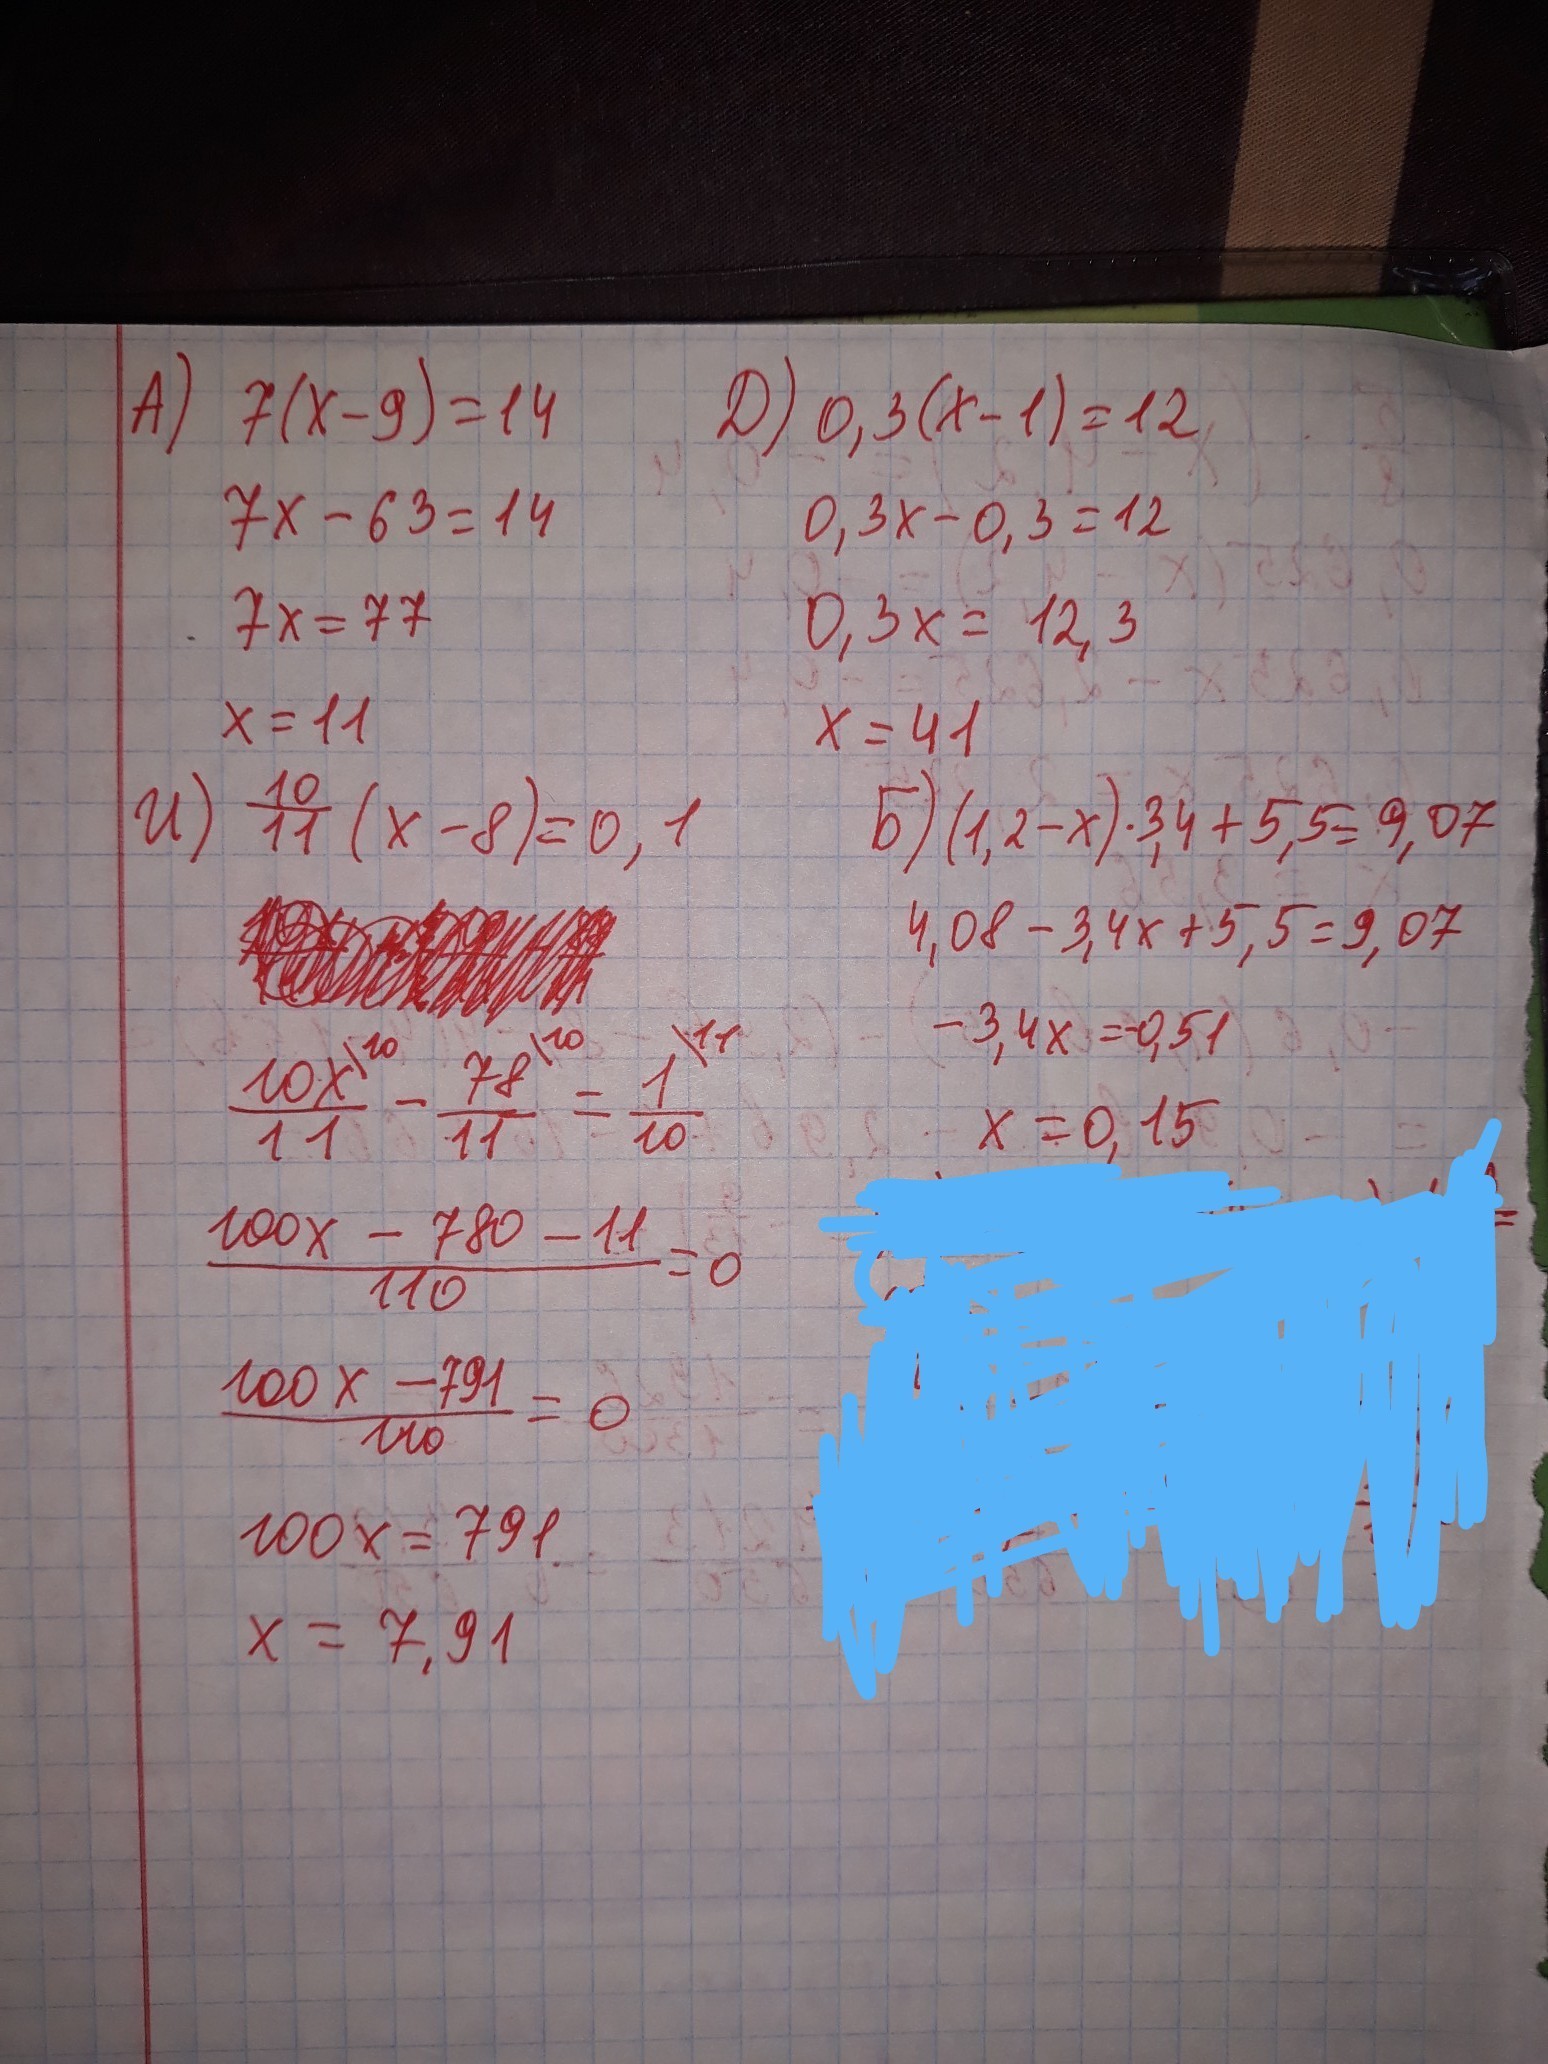 А) 7(x-9)=14
7x-63=14
7x=77
x=11
Д) 0,3(x-1)=12
0,3x-0,3=12
0,3x= 12,3
x=41
И) 10/11 (x-8)=0,1
10x\10/11 - 78\10/11 = 1\11/10
100x - 780 - 11/110 = 0
100x - 791/110 = 0
100x = 791
x = 7,91
Б) (1,2-x)·3,4+5,5=9,07
4,08-3,4x+5,5=9,07
-3,4x=-0,51
x=0,15